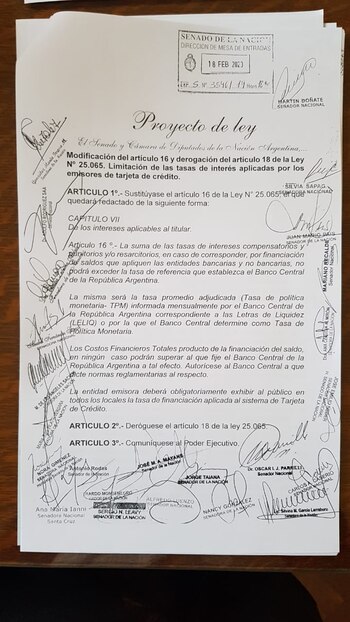 SENADO DE LA NACION
DIRECCION DE MESA DE ENTRADAS
18 FEB 2020
EXP. S Nº
MARTIN DOÑATE
SENADOR NACIONAL
Proyecto de ley
El Senado y Cámara de Diputados de la Nación Argentina,...
Modificación del articulo 16 y derogación del artículo 18 de la Ley
Nº 25.065. Limitación de las tasas de interés aplicadas por los
emisores de tarjeta de crédito.
ARTICULO 1º.- Sustitúyase el artículo 16 de la Ley Nº 25.065, el que
quedará redactado de la siguiente forma:
SILVIA SAPAG
SENADORA NACIONAL
CAPITULO VII
De los intereses aplicables al titular.
JUAN MARIO PAIS
Artículo 16 º.- La suma de las tasas de intereses compensatorios y
punitorios y/o resarcitorios, en caso de corresponder, por financiación
de saldos que apliquen las entidades bancarias y no bancarias, no
podrá exceder la tasa de referencia que establezca el Banco Central
de la República Argentina.
MARIANO RECALDE
La misma será la tasa promedio adjudicada (Tasa de política
monetaria- TPM) informada mensualmente por el Banco Central de
la República Argentina correspondiente a las Letras de Liquidez
(LELIQ) o por la que el Banco Central determine como Tasa de
Política Monetaria.
Los Costos Financieros Totales producto de la financiación del saldo,
en ningún caso podrán superar al que fije el Banco Central de la
República Argentina a tal efecto. Autorícese al Banco Central a que
dicte normas reglamentarias al respecto.
La entidad emisora deberá obligatoriamente exhibir al público en
todos los locales la tasa de financiación aplicada al sistema de Tarjeta
de Crédito.
ARTICULO 2º.- Deróguese el artículo 18 de la ley 25.065
ARTICULO 3º.- Comuníquese al Poder Ejecutivo.
Antonio Rodas
Senador de la Nación
JOSÉ M. A. MAYANS
Senador de la Nación
JORGE TAIANA
SENADOR DE LA NACIÓN
Dr. OSCAR I. J. PARRILLI
Senador Nacional
Ana María Ianni
Senadora Nacional
Santa Cruz
SERGIO N. LEAVY
SENADOR DE LA NACIÓN
ALFREDO LUENZO
SENADOR NACIONAL
NANCY GONZÁLEZ
SENADORA DE LA NACIÓN
Silvina M. García Larraburu
Senadora de la Nación